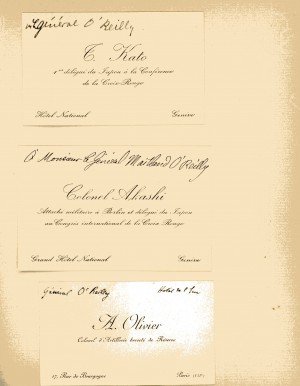 Général O'Reilly
T. Kato
1er délégué du Japon à la Conférence
de la Croix-Rouge
Hôtel National Genève
à Monsieur le Général Maitland O'Reilly
Colonel Akashi
Attaché militaire à Berlin et délégué du Japon
au Congrès international de la Croix Rouge
Grand Hôtel National Genève
Général O'Reilly Hotel
A. Olivier
Colonel d'Artillerie breveté de Réserve
17, Rue de Bourgogne Paris